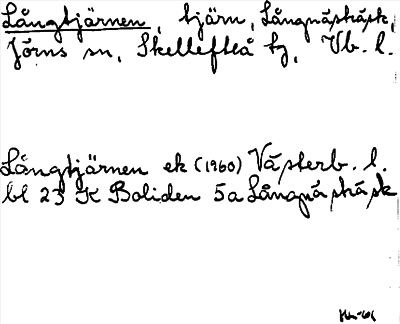 Långtjärnen, tjärn, Långnäskäsk,
Jörns sn, Skellefteå tg, Vb. l.
Långtjärnen ek (1960) Västerb. l.
bl 23 K Boliden 5a Långnäskäsk